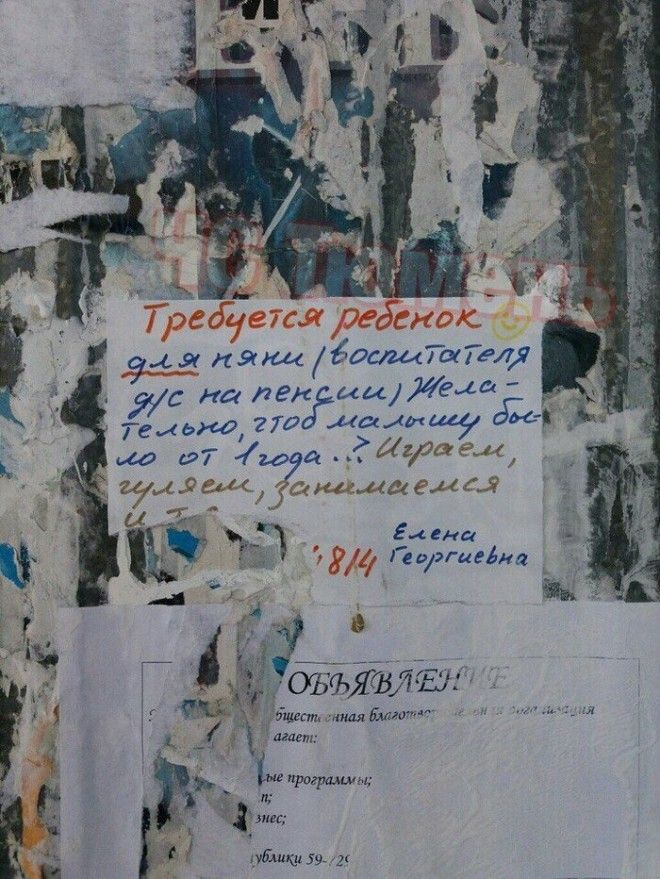 Тюмень
Требуется ребенок
для няни (воспитателя
д/с на пенсии) Жела-
тельно, чтоб малышу бы-
ло от 1 года...? Играем,
гуляем, занимаемся
и т.
8/4
Елена
Георгиевна
ОБЪЯВЛЕНИЕ
бщественная благотворительная организация
агает:
ые программы;
п;
знес;
ублики 59-